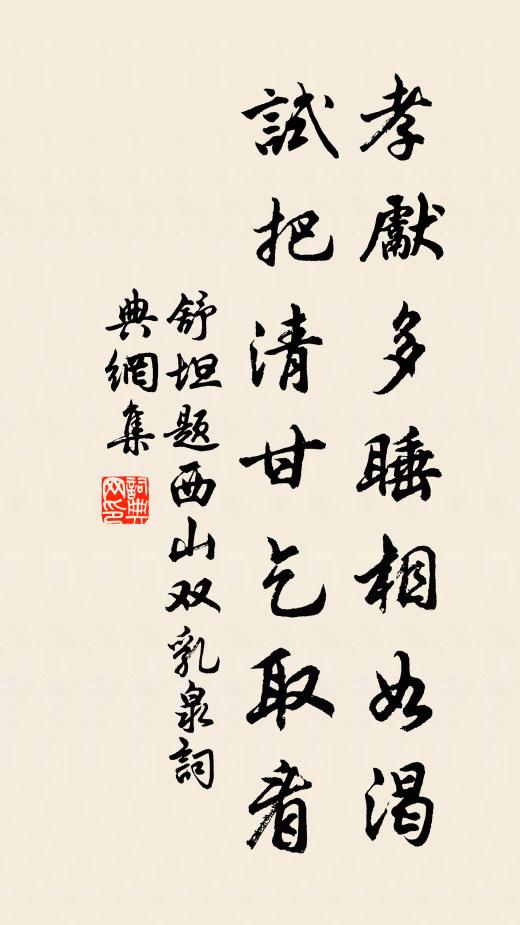 孝獻多睡相如渴
試把清甘乞取看
舒坦題西山双乳泉詞
典網集
詞典网印